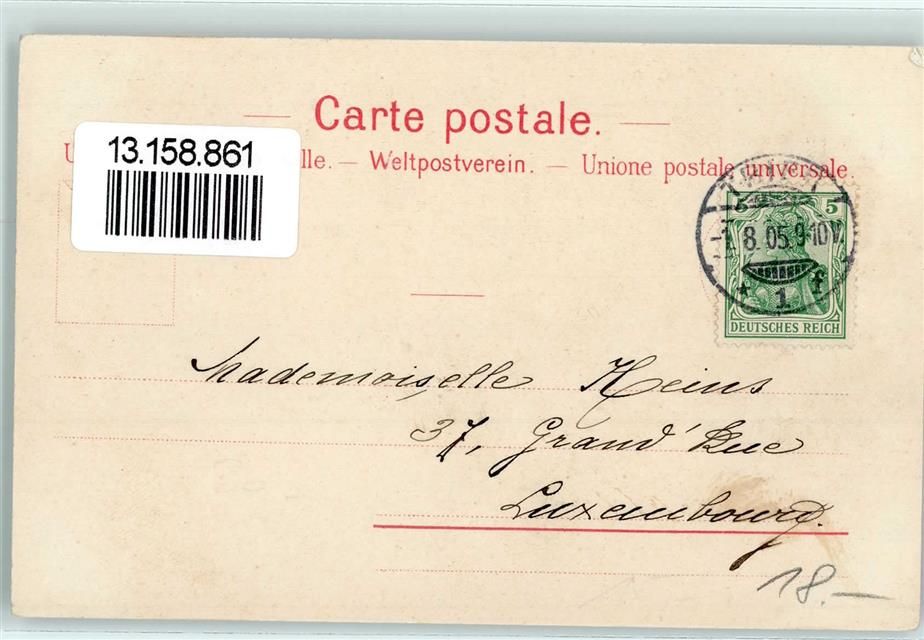 Carte postale.
13.158.861
lle. — Weltpostverein. — Unione postale universale.
8.05.9-10V.
* 1 f
5 5
DEUTSCHES REICH
Mademoiselle Heins
37, Grand'Rue
Luxembourg.
18.—